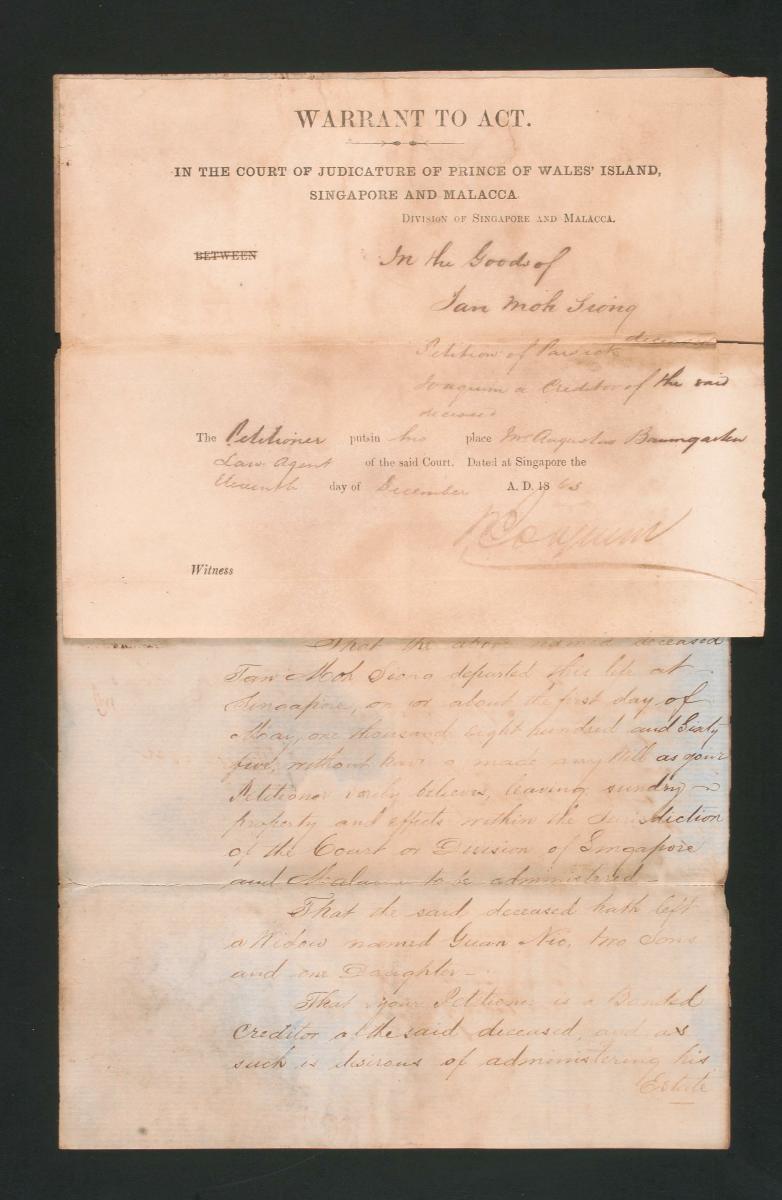 WARRANT TO ACT.
IN THE COURT OF JUDICATURE OF PRINCE OF WALES' ISLAND,
SINGAPORE AND MALACCA.
DIVISION OF SINGAPORE AND MALACCA.
BETWEEN
In the Goods of
Tan Moh Siong
deceased
Petition of Parsick
Joaquim a Creditor of the said
deceased
The Petitioner puts in his place Mr Augustus Baumgarten
Law Agent of the said Court. Dated at Singapore the
Eleventh day of December A. D. 1865
PJoaquim
Witness
That the above named deceased
Tan Moh Siong departed this life at
Singapore, on or about the first day of
May, one thousand eight hundred and Sixty
five, without having made any Will as your
Petitioner verily believes, leaving sundry
property and effects within the Jurisdiction
of the Court or Division of Singapore
and Malacca to be administered
That the said deceased hath left
a Widow named Guan Nio, two Sons
and one Daughter
That your Petitioner is a Bonded
Creditor of the said deceased, and as
such is desirous of administering his
Estate